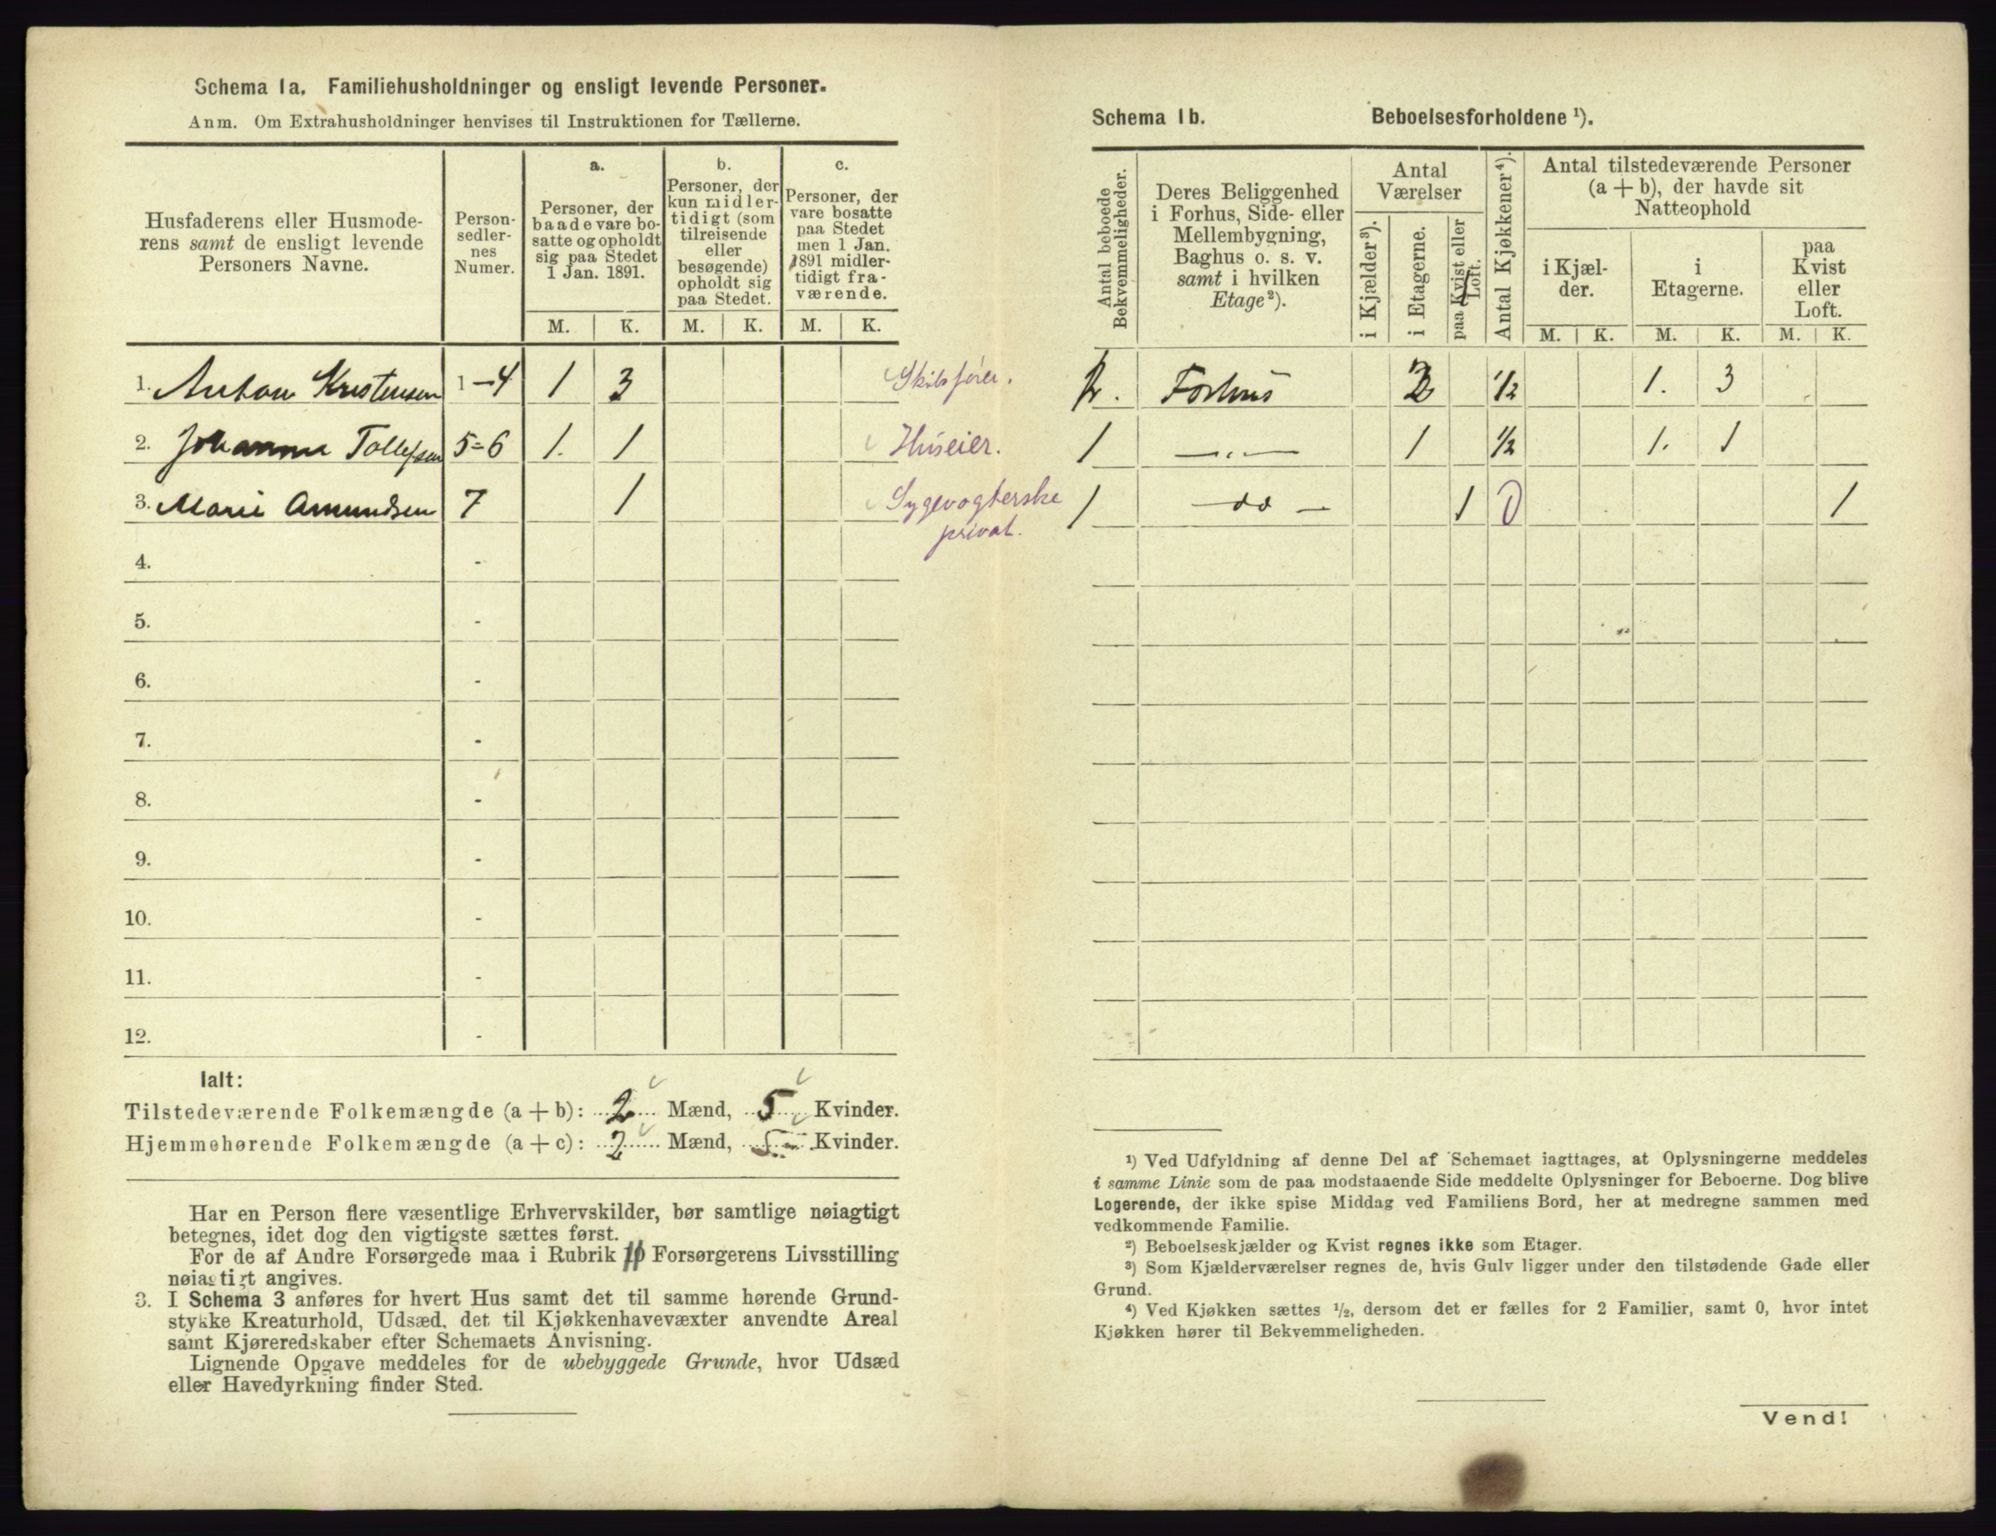 Schema 1a. Familiehusholdninger og ensligt levende Personer.
Anm. Om Extrahusholdninger henvises til Instruktionen for Tællerne.
Husfaderens eller Husmode-
rens samt de ensligt levende
Personers Navne.
Person-
sedler-
nes
Numer.
a.
Personer, der
baade vare bo-
satte og opholdt
sig paa Stedet
1 Jan. 1891.
b.
Personer, der
kun midler-
tidigt (som
tilreisende
eller
besøgende)
opholdt sig
paa Stedet.
c.
Personer, der
vare bosatte
paa Stedet
men 1 Jan.
1891 midler-
tidigt fra-
værende.
M. K. M. K. M. K.
1. Anton Kristensen 1-4 1 3 Skibsfører.
2. Johanna Tollefsen 5-6 1. 1 Huseier.
3. Marie Amundsen 7 1 Sygevogterske
privat.
4. -
5. -
6. -
7. -
8. -
9. -
10. -
11. -
12. -
Ialt:
Tilstedeværende Folkemængde (a + b): 2 Mænd, 5 Kvinder.
Hjemmehørende Folkemængde (a + c): 2 Mænd, 5 Kvinder.
Har en Person flere væsentlige Erhvervskilder, bør samtlige nøiagtigt
betegnes, idet dog den vigtigste sættes først.
For de af Andre Forsørgede maa i Rubrik Forsørgerens Livsstilling
nøiagtigt angives.
3. I Schema 3 anføres for hvert Hus samt det til samme hørende Grund-
stykke Kreaturhold, Udsæd, det til Kjøkkenhavevæxter anvendte Areal
samt Kjøreredskaber efter Schemaets Anvisning.
Lignende Opgave meddeles for de ubebyggede Grunde, hvor Udsæd
eller Havedyrkning finder Sted.
Schema 1b. Beboelsesforholdene ¹).
Antal beboede
Bekvemmeligheder.
Deres Beliggenhed
i Forhus, Side- eller
Mellembygning,
Baghus o. s. v.
samt i hvilken
Etage ²).
Antal
Værelser
i Kjælder ³).
i Etagerne.
paa Kvist eller
Loft.
Antal Kjøkkener ⁴).
Antal tilstedeværende Personer
(a + b), der havde sit
Natteophold
i Kjæl-
der.
i
Etagerne.
paa
Kvist
eller
Loft.
M. K. M. K. M. K.
Forhus 2 ½ 1. 3
1 —„— 1 ½ 1. 1
1 — do — 1 0 1
¹) Ved Udfyldning af denne Del af Schemaet iagttages, at Oplysningerne meddeles
i samme Linie som de paa modstaaende Side meddelte Oplysninger for Beboerne. Dog blive
Logerende, der ikke spise Middag ved Familiens Bord, her at medregne sammen med
vedkommende Familie.
²) Beboelseskjælder og Kvist regnes ikke som Etager.
³) Som Kjælderværelser regnes de, hvis Gulv ligger under den tilstødende Gade eller
Grund.
⁴) Ved Kjøkken sættes ½, dersom det er fælles for 2 Familier, samt 0, hvor intet
Kjøkken hører til Bekvemmeligheden.
Vend!